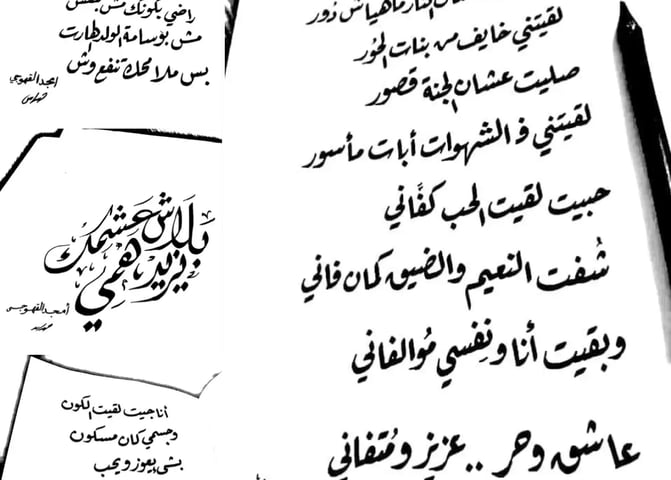 راضي بكونك مش
مش بوسامة الولد طارت
بس ملامحك تنفع وش
امجد القهوجي
بلاش عشمك
يزيد همي
أمجد القهوجي
أنا جيت لقيت الكون
وجسمي كان مسكون
بشئ يعوز ويحب
لقيتني خايف من بنات الحُور
صليت عشان الجنة قصور
لقيتني في الشهوات أبات مأسور
حبيت لقيت الحب كفَّاني
شُفت النعيم والضيق كمان فاني
وبقيت أنا ونِفسي مُوالفاني
عاشق وحر .. عزيز ومُتفاني